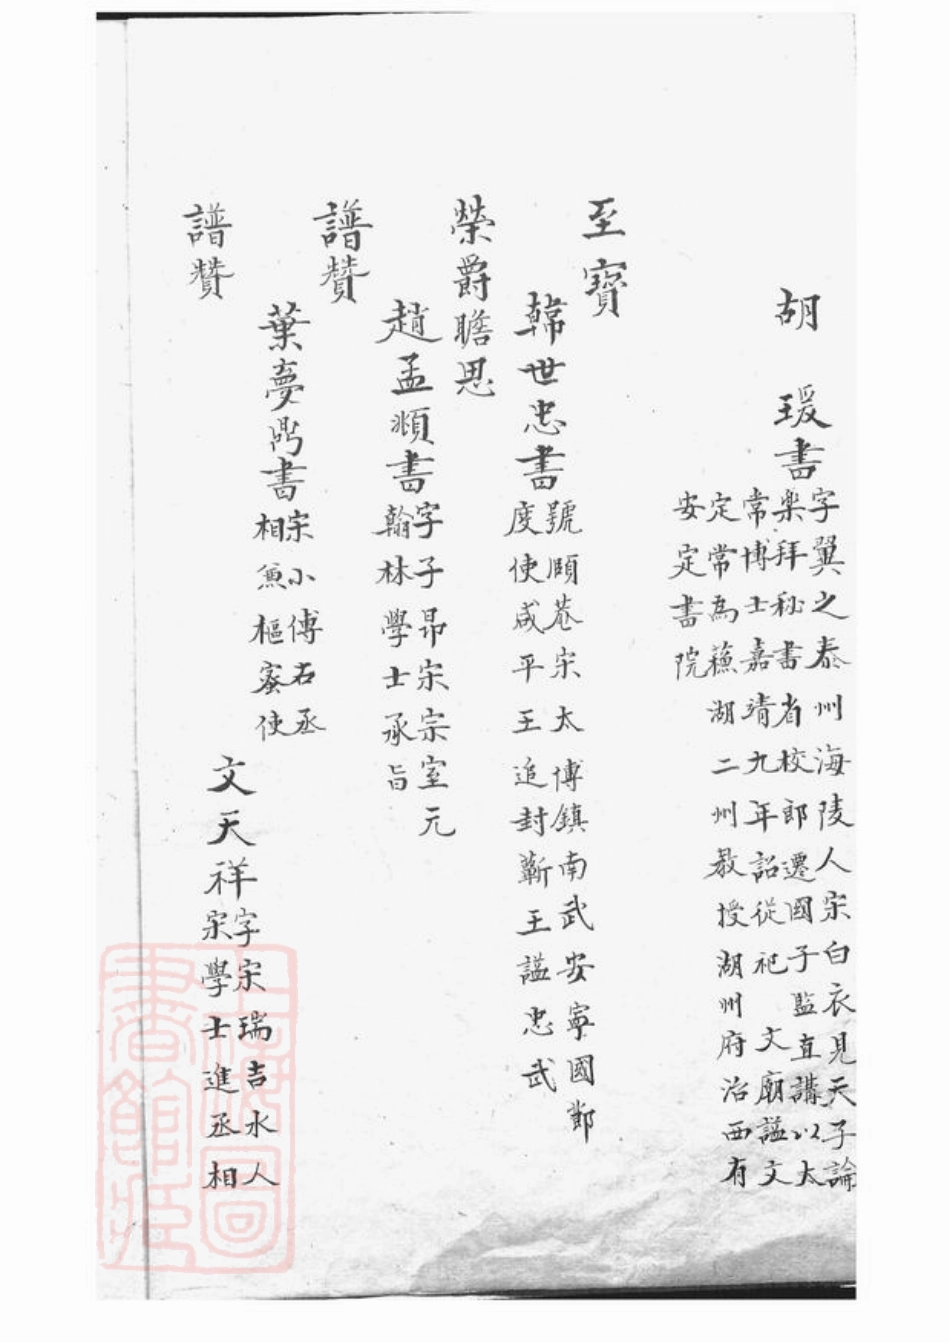 胡　瑗書
字翼之泰州海陵人宋白衣見天子論
楽拜秘書省校郎遷國子監直講以太
常博士嘉靖九年詔從祀　文廟謚文
定常為蘓湖二州教授湖州府治西有
安定書院
至寳
韓世忠書
號頤菴宋太博鎮南武安寧國鄭
度使咸平王追封蘄王謚忠武
榮爵瞻思
趙孟頫書
字子昻宋宗室元
翰林學士承旨
譜贊
葉夢鼎書
宋小傅右丞
相兼樞宻使
譜贊
文天祥
字宋瑞吉水人
宋學士進丞相
上海圖
書館藏